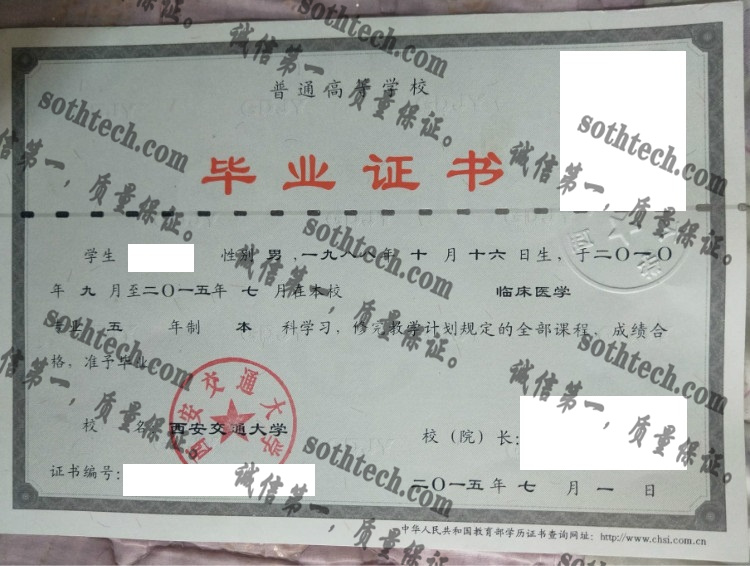 普通高等学校
毕业证书
学生 性别 男 ,一九八八年 十 月 十六 日生，于二〇一〇
年 九 月至二〇一五年 七 月在本校 临床医学
专业 五 年制 本 科学习，修完教学计划规定的全部课程，成绩合
格，准予毕业
校 名 西安交通大学
校（院）长：
证书编号：
二〇一五年 七 月 一 日
中华人民共和国教育部学历证书查询网址：http://www.chsi.com.cn
西安交通大学
sothtech.com
诚信第一，质量保证。
sothtech.com
诚信第一，质量保证。
sothtech.com
诚信第一，质量保证。
sothtech.com
诚信第一，质量保证。
sothtech.com
诚信第一，质量保证。
sothtech.com
诚信第一，质量保证。
sothtech.com
诚信第一，质量保证。
sothtech.com
诚信第一，质量保证。